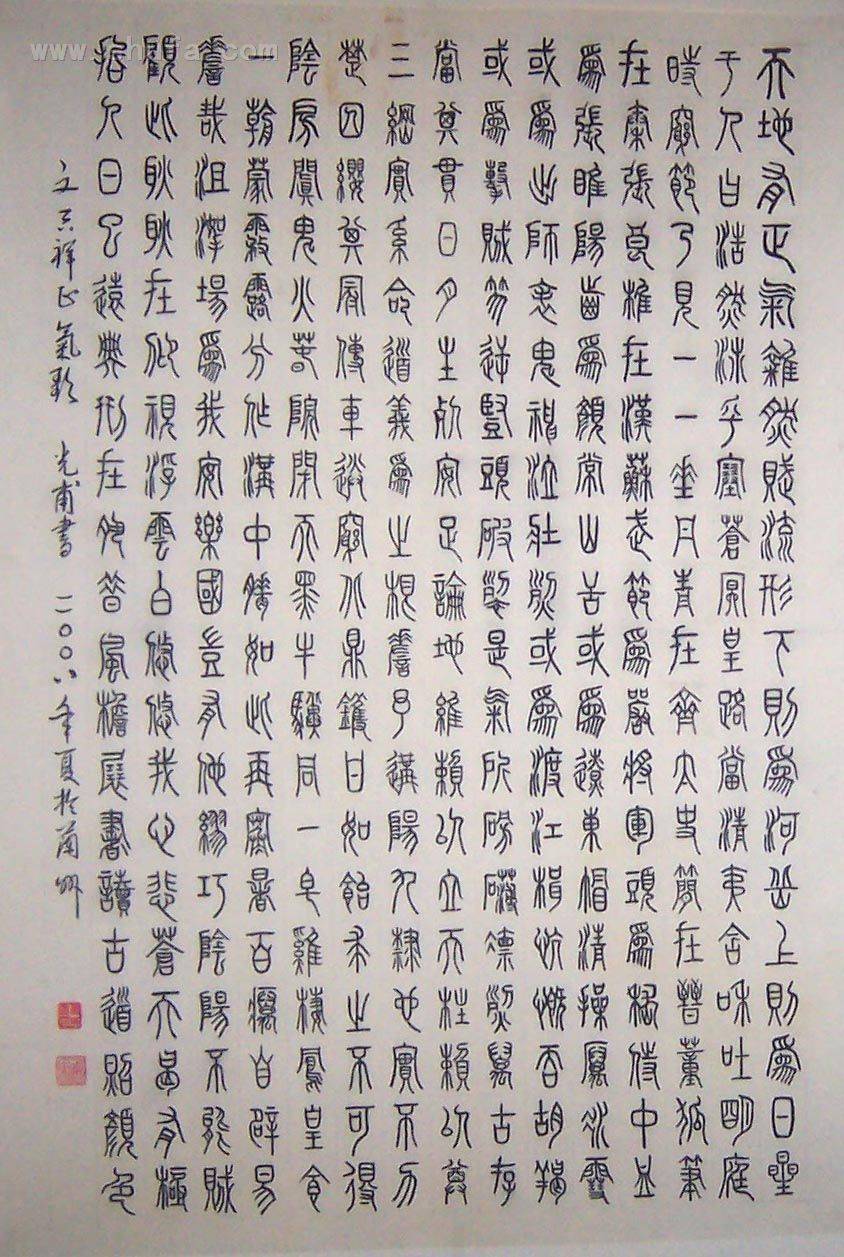 天地有正氣雜然賦流形下則爲河岳上則爲日星
于人曰浩然沛乎塞蒼冥皇路當清夷含和吐明庭
時窮節乃見一一垂丹青在齊太史簡在晉董狐筆
在秦張良椎在漢蘇武節爲嚴將軍頭爲嵇侍中血
爲張睢陽齒爲顏常山舌或爲遼東帽清操厲冰雪
或爲出師表鬼神泣壯烈或爲渡江楫慷慨吞胡羯
或爲擊賊笏逆豎頭破裂是氣所磅礴凜烈萬古存
當其貫日月生死安足論地維賴以立天柱賴以尊
三綱實系命道義爲之根嗟予遘陽九隸也實不力
楚囚纓其冠傳車送窮北鼎鑊甘如飴求之不可得
陰房闃鬼火春院閉天黑牛驥同一皂雞棲鳳皇食
一朝蒙霧露分作溝中瘠如此再寒暑百癘自辟易
嗟哉沮洳場爲我安樂國豈有他繆巧陰陽不能賊
顧此耿耿在仰視浮雲白悠悠我心悲蒼天曷有極
哲人日已遠典刑在夙昔風檐展書讀古道照顏色
文天祥正氣歌 光甫書 二〇〇八年夏於蘭州